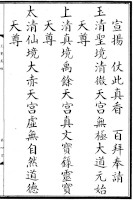 宣揚　仗此真香　百拜奉請
玉清聖境清微天宮無極大道元始
天尊
上清真境禹餘天宮真文寶籙靈寶
天尊
太清仙境大赤天宮虛無自然道德
天尊